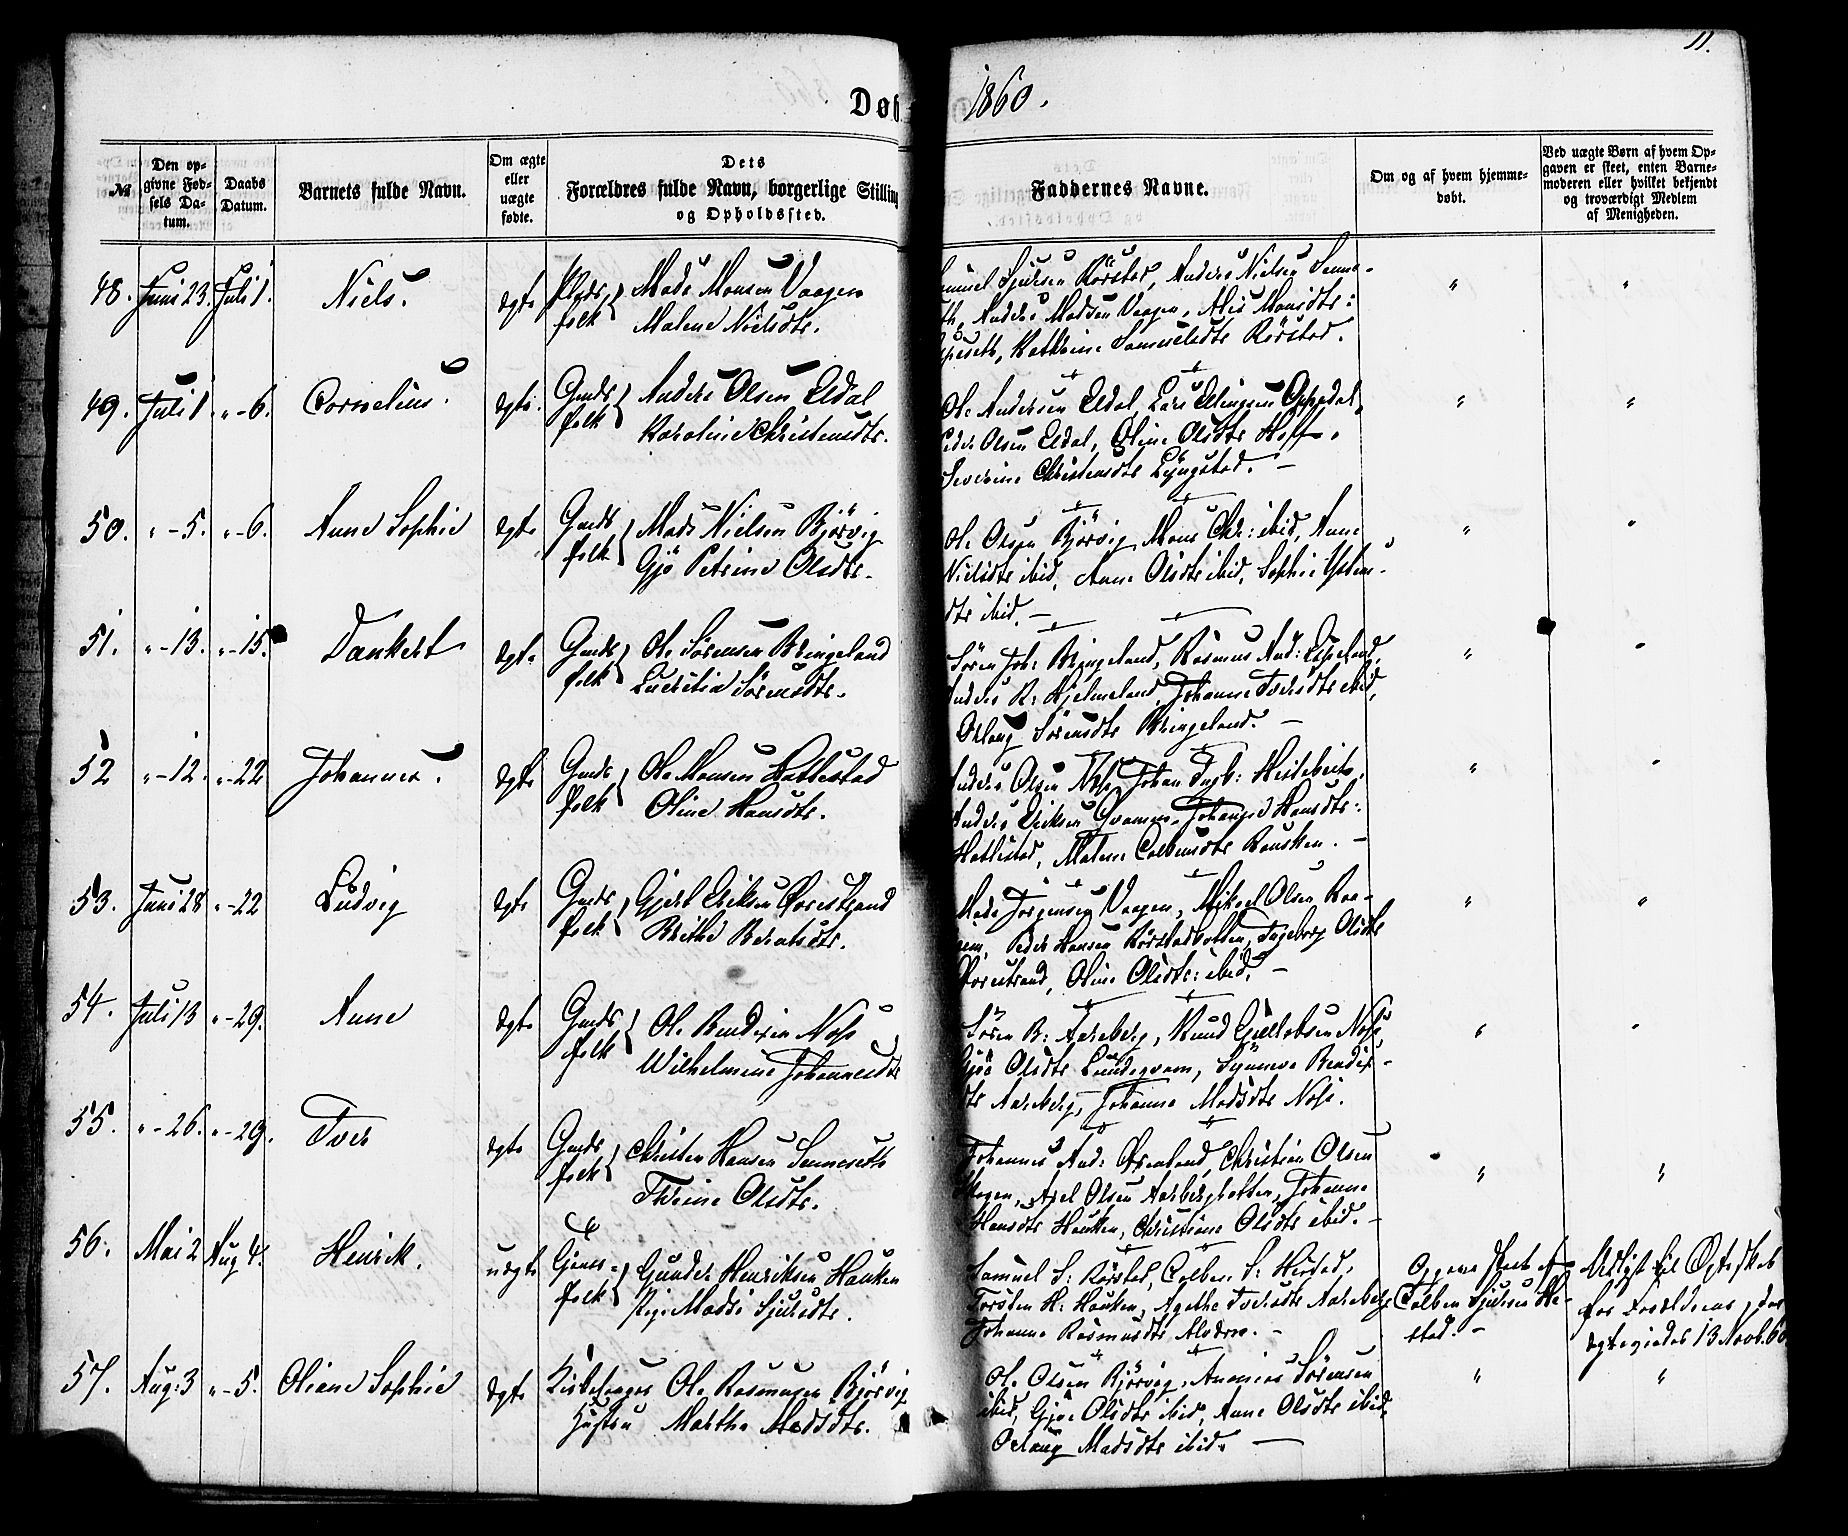 11.
Døb 1860.
№
Den op-
givne Fød-
sels Da-
tum.
Daabs
Datum.
Barnets fulde Navn.
Om ægte
eller
uægte
fødte.
Dets
Forældres fulde Navn, borgerlige Stilling
og Opholdssted.
Faddernes Navne.
Om og af hvem hjemme-
døbt.
Ved uægte Børn af hvem Op-
gaven er skeet, enten Barne-
moderen eller hvilket bekjendt
og troværdigt Medlem
af Menigheden.
48. Juni 23. Juli 1. Niels. ægte Plads folk Mads Monsen Vaagen
Malene Nielsdtr.
Sjursen Rörstad, Anders Nielsen Senne-
Anders Madsen Vaagen, Monsdtr:
Kathrine Samuelsdtr Rörstad.
" "
49. Juli 1. "-6. Cornelius. ægte. Gmds folk Anders Olsen Eldal
Karoline Christensdtr.
Ole Andersen Eldal, Lars Ellingsen Oppedal,
Peder Olsen Eldal, Oline Olsdtr Hoff,
Severine Christensdtr Lyngstad. –
" "
50. "-5. "-6. Anne Sophie ægte Gmds folk Mads Nielsen Björvig
Gjö Petrine Olsdtr.
Ole Olsen Björvig, Mons Chr: ibid, Anne
Nielsdtr ibid, Anne Olsdtr ibid, Sophie
dtr ibid. –
" "
51. "-13. "-15. Dankert ægte Gmds folk Ole Sörensen Bringeland
Lucretia Sörensdtr.
Sören Joh: Bringeland, Rasmus And:
Anders R: Hjelmeland, Johanne Iversdtr ibid,
Sörensdtr Bringeland. –
" "
52 "-12. "-22 Johannes. ægte Gmds folk Ole Monsen Hatlestad
Oline Hansdtr.
Anders Olsen Nose, Johan Ingb:
Anders Eriksen Hansdtr:
Hatlestad, Malene Colbensdtr –
" "
53. Juni 28 "-22 Ludvig ægte Gmds folk Gjert Eriksen Furestrand
Brithe Berentsdtr.
Mads Jörgensen Vaagen, Mikael Olsen
Peder Hansen Rörstadbotten, Ingeborg Olsdtr
Furestrand, Oline Olsdtr: ibid. –
" "
54. Juli 13 "-29. Anne ægte Gmds folk Ole Bendixen Nose
Wilhelmine Johannesdtr
Sören B: Aarberg, Knud Nose,
Olsdtr Synneve Bendix-
dtr Aarberg, Johanne Madsdtr Nose.
" "
55. "-26. "-29. Iver ægte Gmds folk Christen Hansen Senneseth
Thrine Olsdtr.
Johannes And: Christian Olsen
Axel Olsen Aarbergbotten, Johanne
Hansdtr Hauken, Christine Olsdtr ibid. –
" "
56. Mai 2 Aug 4. Henrik. uægte folk Gunder Henriksen Hauken
Pige Madsi Sjursdtr.
Samuel S: Rörstad, Colben S: Hestad,
Torsten H: Hauken, Agathe Iversdtr Aarberg
Johanne Rasmusdtr –
Opgave skeet af
Colben Sjursen He-
stad. –
Udlyst til Ægteskab
for Forældrene, der
ægteviedes 13 Novb. 60
57. Aug: 3 "-5. Oliane Sophie ægte Kirkesanger Ole Rasmusen Björvig
Hustru Marthe Madsdtr.
Ole Olsen Björvig, Ananias Sörensen
ibid, Gjöe Olsdtr ibid, Anne Olsdtr ibid,
Madsdtr ibid. –
" "